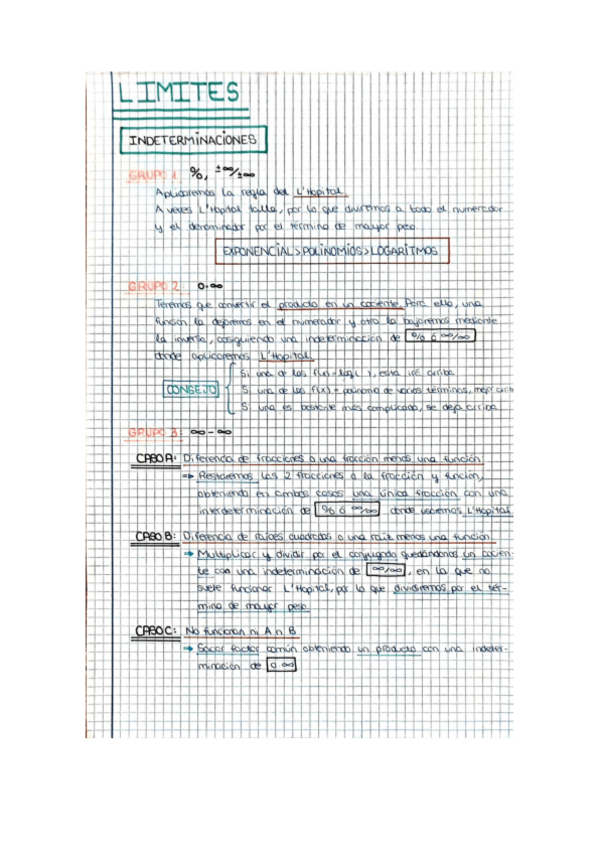 LIMITES
INDETERMINACIONES
GRUPO 1: %, ±∞/±∞
Aplicaremos la regla del L'Hopital.
A veces L'Hopital falla, por lo que dividimos a todo el numerador
y el denominador por el término de mayor peso.
EXPONENCIAL > POLINOMIOS > LOGARITMOS
GRUPO 2: 0·∞
Tenemos que convertir el producto en un cociente. Para ello, una
función la dejaremos en el numerador y otra la bajaremos mediante
la inversa, cosiguiendo una indeterminación de % ó ∞/∞
donde aplicaremos L'Hopital.
CONSEJO
Si una de las f(x) = log( ), esta irá arriba
Si una de las f(x) = polinomio de varios términos, mejor arrib
Si una es bastante más complicada, se deja arriba
GRUPO 3: ∞-∞
CASO A: Diferencia de fracciones o una fracción menos una función
➡ Restaremos las 2 fracciones o la fracción y función,
obteniendo en ambos casos una única fracción con una
interdeterminación de % ó ∞/∞ donde usaremos L'Hopital
CASO B: Diferencia de raíces cuadradas o una raíz menos una función
➡ Multiplicar y dividir por el conjugado quedándonos un cocien-
te con una indeterminación de ∞/∞, en la que no
suele funcionar L'Hopital, por lo que dividiremos por el tér-
mino de mayor peso.
CASO C: No funcionan ni A ni B
➡ Sacar factor común obteniendo un producto con una indeter-
minación de 0·∞